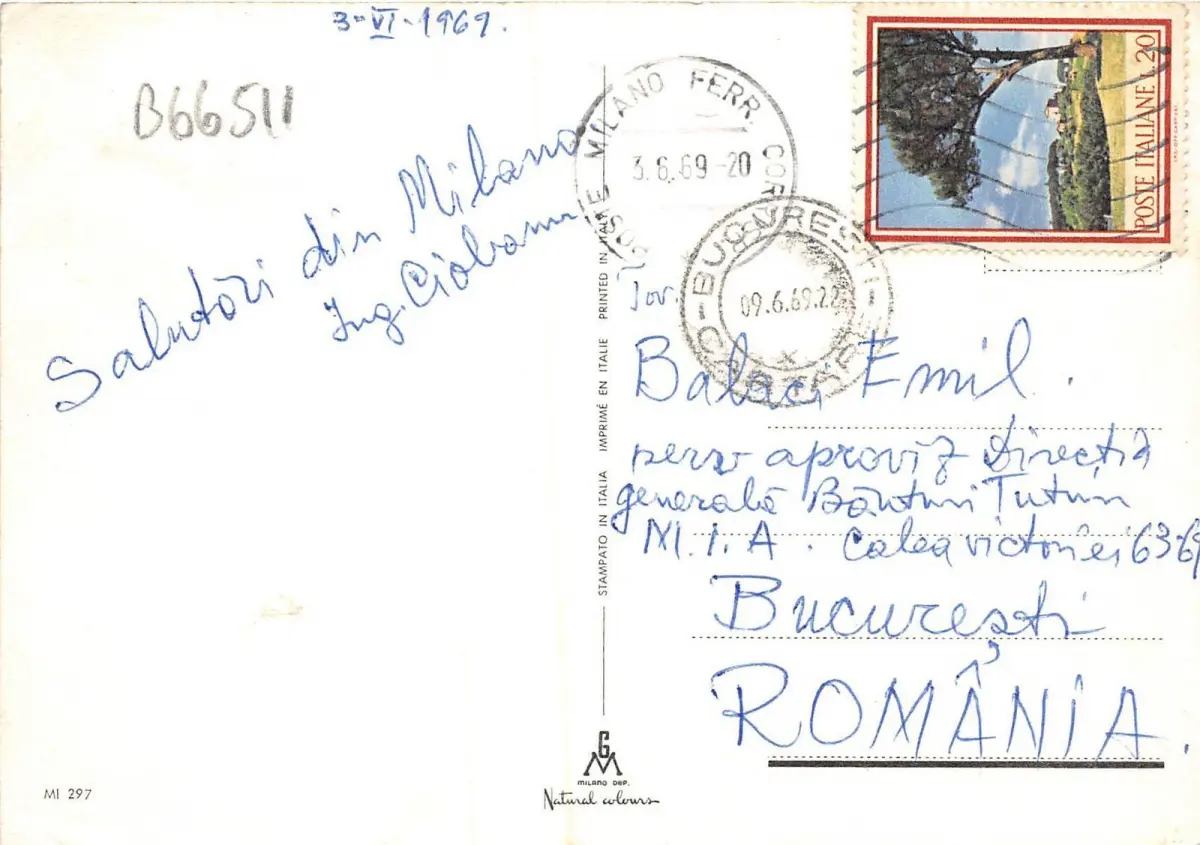 3-VI-1969.
B66511
Salutări din Milano
Ing. Ciobanu
MILANO FERR. COR
3.6.69-20
POSTE ITALIANE L.20
BUCUREȘTI
09.6.69.22
Tov.
Balaci Emil.
serv aproviz Direcția
generală Băuturi Tutun
M.I.A. Calea victoriei 63-69
București
ROMÂNIA.
STAMPATO IN ITALIA IMPRIMÉ EN ITALIE PRINTED IN ITALIE
GM
MILANO DEP.
Natural colours
MI 297